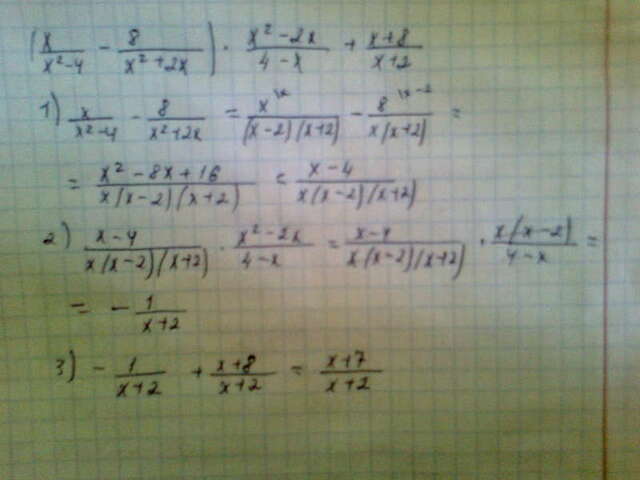 (x/(x²-4) - 8/(x²+2x)) · (x²-2x)/(4-x) + (x+8)/(x+2)
1) x/(x²-4) - 8/(x²+2x) = x^{\x}/((x-2)(x+2)) - 8^{\x-2}/(x(x+2)) =
= (x²-8x+16)/(x(x-2)(x+2)) = (x-4)/(x(x-2)(x+2))
2) (x-4)/(x(x-2)(x+2)) · (x²-2x)/(4-x) = (x-4)/(x(x-2)(x+2)) · x(x-2)/(4-x) =
= - 1/(x+2)
3) - 1/(x+2) + (x+8)/(x+2) = (x+7)/(x+2)